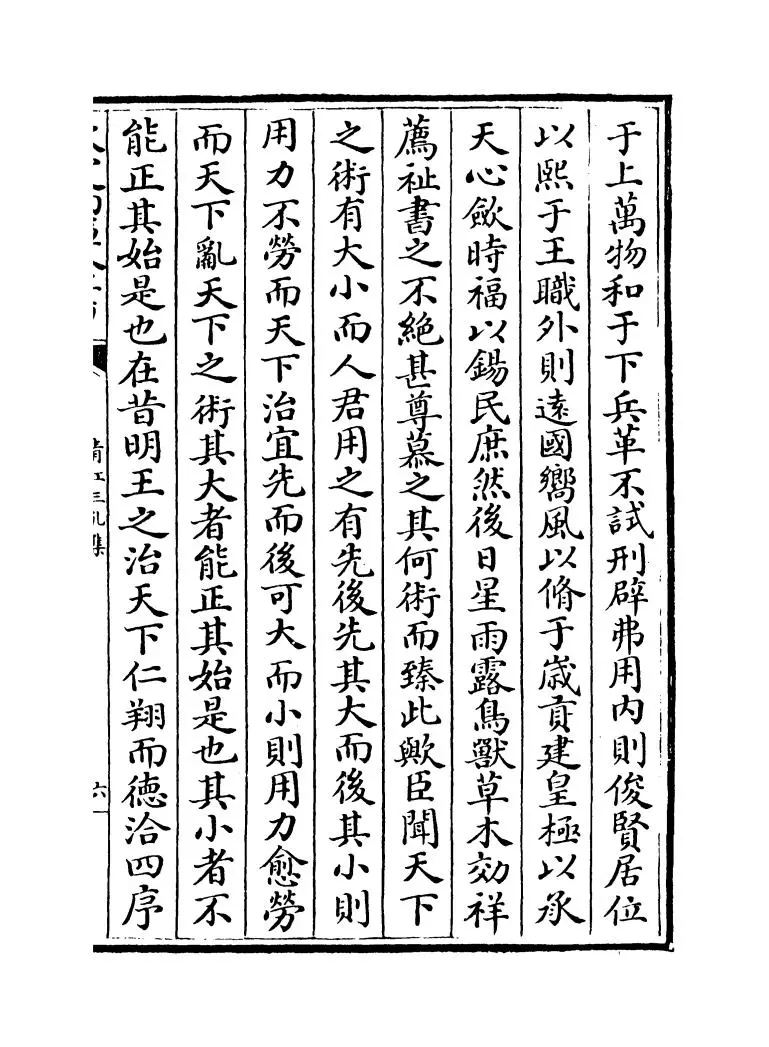 于上萬物和于下兵革不試刑辟弗用内則俊賢居位
以熙于王職外則逺國嚮風以脩于歲貢建皇極以承
天心歛時福以錫民庶然後日星雨露鳥獸草木効祥
薦祉書之不絶甚尊慕之其何術而臻此歟臣聞天下
之術有大小而人君用之有先後先其大而後其小則
用力不勞而天下治宜先而後可大而小則用力愈勞
而天下亂天下之術其大者能正其始是也其小者不
能正其始是也在昔明王之治天下仁翔而徳洽四序
清江三孔集
六